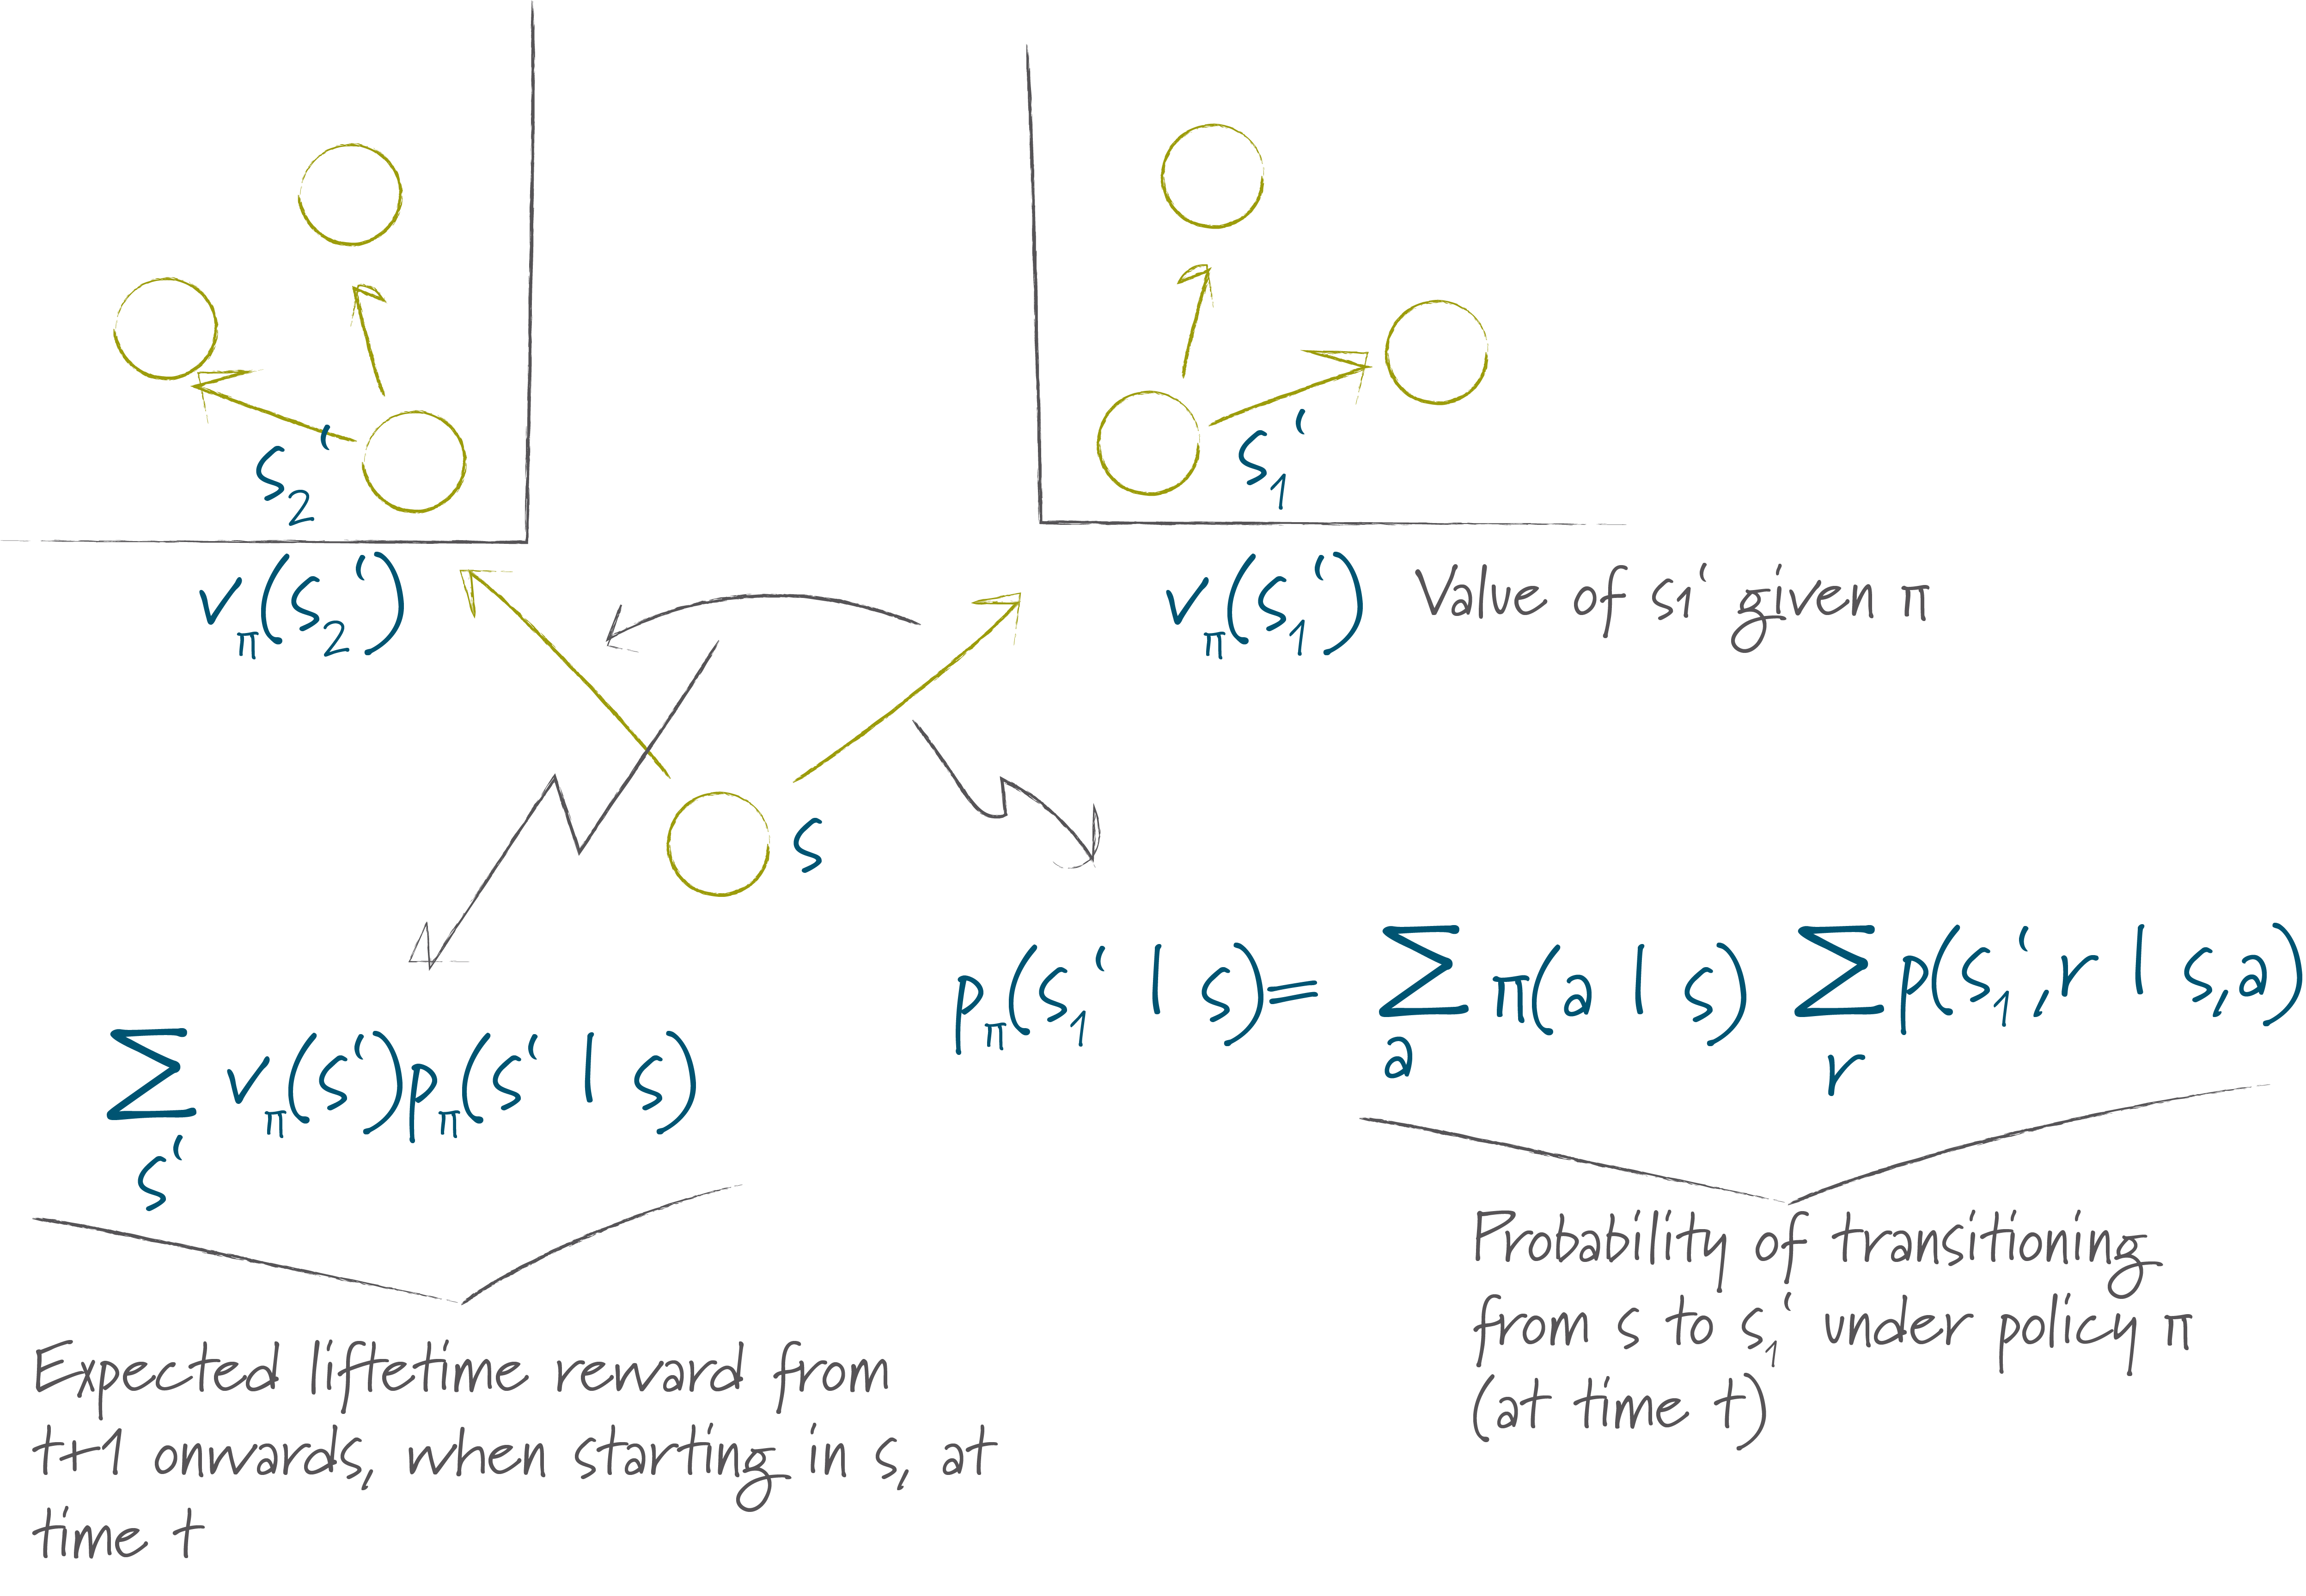 s₂‘
s₁‘
vπ(s₂‘)
vπ(s₁‘) Value of s1‘ given π
s
pπ(s₁‘ | s)= ∑ π(a | s) ∑ p(s₁‘,r | s,a)
a r
∑ vπ(s‘)pπ(s‘ | s)
s‘
Probability of transitioning
from s to s₁‘ under policy π
(at time t)
Expected liftetime reward from
t+1 onwards, when starting in s, at
time t